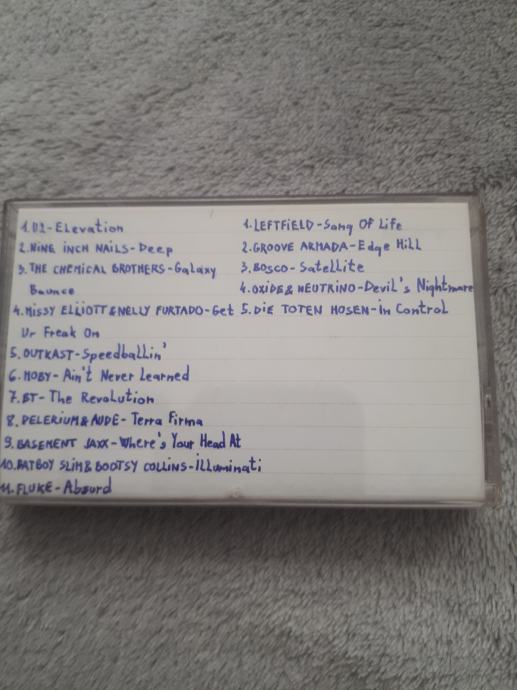 1.U2-Elevation
2.NINE INCH NAILS-Deep
3.THE CHEMICAL BROTHERS-Galaxy
Bounce
4.MISSY ELLIOTT&NELLY FURTADO-Get
Ur Freak On
5.OUTKAST-Speedballin'
6.MOBY-Ain't Never Learned
7.BT-The Revolution
8.DELERIUM&AUDE-Terra Firma
9.BASEMENT JAXX-Where's Your Head At
10.FATBOY SLIM&BOOTSY COLLINS-illuminati
11.FLUKE-Absurd
1.LEFTFIELD-Song Of Life
2.GROOVE ARMADA-Edge Hill
3.BOSCO-Satellite
4.OXIDE&NEUTRINO-Devil's Nightmare
5.DIE TOTEN HOSEN-in Control